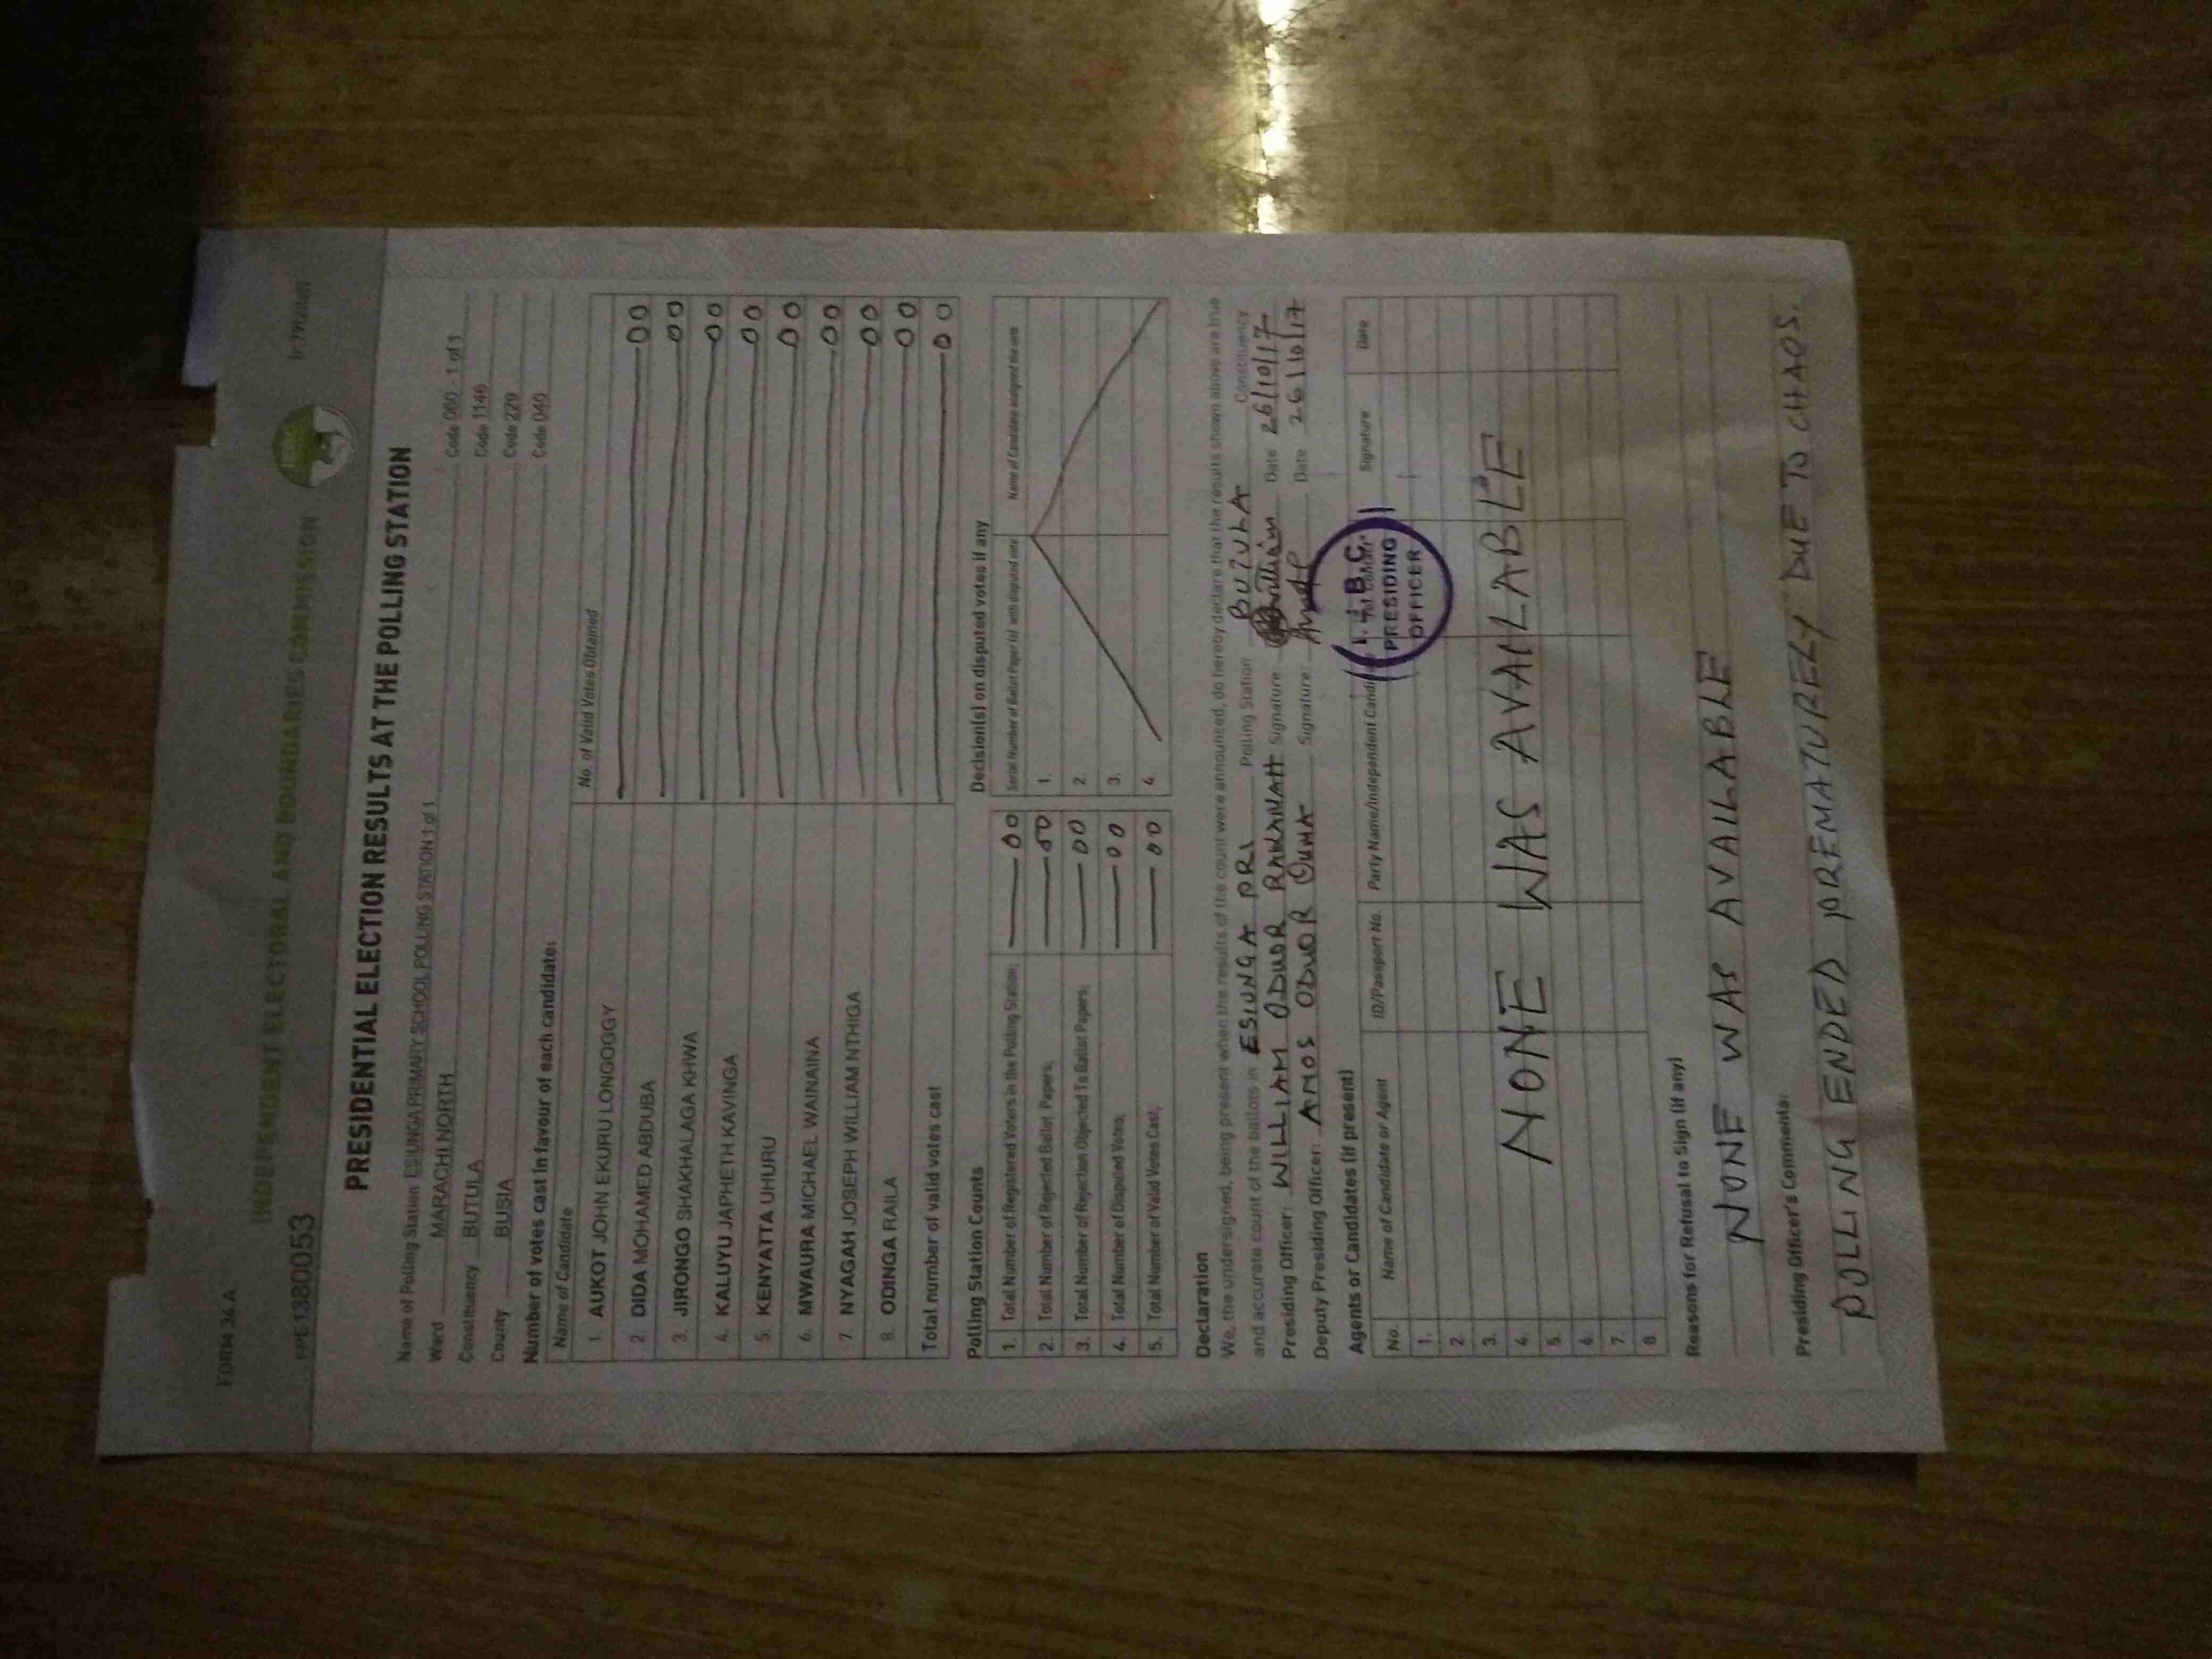 FORM 34 A
INDEPENDENT ELECTORAL AND BOUNDARIES COMMISSION
PRE1380053
PRESIDENTIAL ELECTION RESULTS AT THE POLLING STATION
Name of Polling Station ESIUNGA PRIMARY SCHOOL POLLING STATION 1 of 1 Code 060 - 1 of 1
Ward MARACHI NORTH Code 1146
Constituency BUTULA Code 229
County BUSIA Code 040
Number of votes cast in favour of each candidate:
Name of Candidate No. of Valid Votes Obtained
1. AUKOT JOHN EKURU LONGOGGY 00
2. DIDA MOHAMED ABDUBA 00
3. JIRONGO SHAKHALAGA KHWA 00
4. KALUYU JAPHETH KAVINGA 00
5. KENYATTA UHURU 00
6. MWAURA MICHAEL WAINAINA 00
7. NYAGAH JOSEPH WILLIAM NTHIGA 00
8. ODINGA RAILA 00
Total number of valid votes cast 00
Polling Station Counts
1. Total Number of Registered Voters in the Polling Station; 00
2. Total Number of Rejected Ballot Papers; 00
3. Total Number of Rejection Objected To Ballot Papers; 00
4. Total Number of Disputed Votes; 00
5. Total Number of Valid Votes Cast; 00
Decision(s) on disputed votes if any
Serial Number of Ballot Paper (s) with disputed vote Name of Candidate assigned the vote
1.
2.
3.
4.
Declaration
We, the undersigned, being present when the results of the count were announced, do hereby declare that the results shown above are true
and accurate count of the ballots in ESIUNGA PRI Polling Station BUTULA Constituency
Presiding Officer: WILLIAM ODUOR Signature William Date 26/10/17
Deputy Presiding Officer: AMOS ODUOR OUMA Signature: Date 26/10/17
Agents or Candidates (if present)
No. Name of Candidate or Agent ID/Passport No. Party Name/Independent Candidate Signature Date
I.E.B.C.
PRESIDING
OFFICER
1.
2.
3.
4.
5.
6.
7.
8.
NONE WAS AVAILABLE
Reasons for Refusal to Sign (if any)
NONE WAS AVAILABLE
Presiding Officer's Comments:
POLLING ENDED PREMATURELY DUE TO CHAOS.